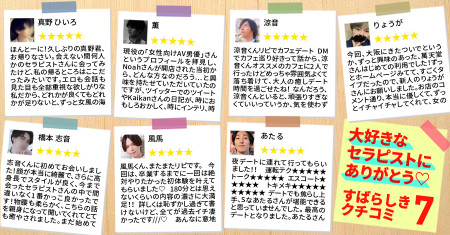 真野 ひいろ
★★★★★
ほんとーに！久しぶりの真野君、
お帰りなさい。会えない間何人
かのセラピストさんに会ってみ
たけど、私の帰るところはここだ
ったみたいです。エロも会話も
見た目も全部重複な欲しがりな
私だから、どれかが良くてもどれ
かが足りないと、ずっと女風の海
薫
★★★★★
現役の「女性向けAV男優」さん
というプロフィールを拝見し、
Noahさんが開店された当初か
ら、どんな方なのだろう…と興
味を持たせていただいていたの
ですが、ツイッターでのツイート
やKaikanさんの日記が、時にお
もしろおかしく、時にインテリ、時
涼音
★★★★★
涼音くんリピでカフェデート DM
でカフェ巡り好きって話から、涼
音くんオススメのカフェに2人で
行ったけどめっちゃ雰囲気よくて
落ち着けて、大人の癒しデート
時間を過ごせたね！なんだろう、
涼音くんといると、頑張りすぎな
くていいっていうか、気を使わず
りょうが
★★★★★
今回、大阪にきたついでという
か、ずっと興味のあった、萬天堂
さんはじめての利用でした！ずっ
とホームページみてて、すごくタ
イプだったので、新人りょうがさ
んにお願いしました。お店のコ
メント通り、本当に優しくて、ずっ
とイチャイチャしてくれて、女の
橋本 志音
★★★★★
志音くんに初めてお会いしまし
た！顔が本当に綺麗で、さらに高
身長でスタイルが良く、今まで
会ったセラピストさんの中で間
違いなく1番かっこ良かったで
す！物腰も柔らかく、こちらの話
を親身になって聞いてくれてとて
も癒やされました。まだ始めて
風馬
★★★★★
風馬くん、またまたリピです。 今
回は、卒業するまでに一回は絶
対やりたかった初体験を叶えて
もらいました♡ 180分とは思
えないくらいの内容の濃さに大満
足！！ 詳しくは恥ずかし過ぎて書
けないけど、全てが過去イチ凄
かったです///♡ あんなに意地
あたる
★★★★★
夜デートに連れて行ってもらい
ました！！ 運転テク★★★★★
トーク★★★★★ エスコート★
★★★★ トキメキ★★★★★
★★★★★ デートも焦らし上
手、Sなあたるさんが堪能できる
と言ってませんでした。最高の
デートとなりました。あたるさん
大好きな
セラピストに
ありがとう♡
すばらしき
クチコミ 7